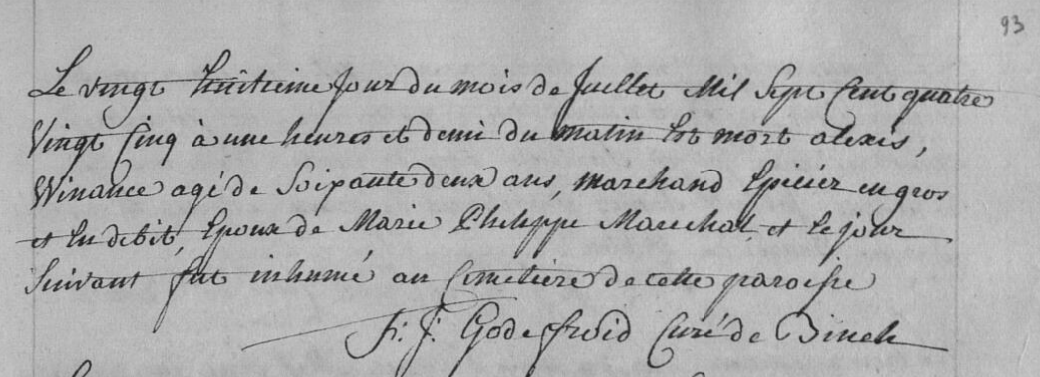 93
Le vingt huitieme jour du mois de Juillet Mil Sept Cent quatre
Vingt Cinq à une heures et demi du matin Est mort alexis,
Winance agé de Soixante deux ans, marchand Epicier en gros
et En debit, Epoux de Marie Philippe Marechal, et le jour
Suivant fut inhumé au Cimetiere de cette paroisse
F: J: Godefroid Curé de Binch